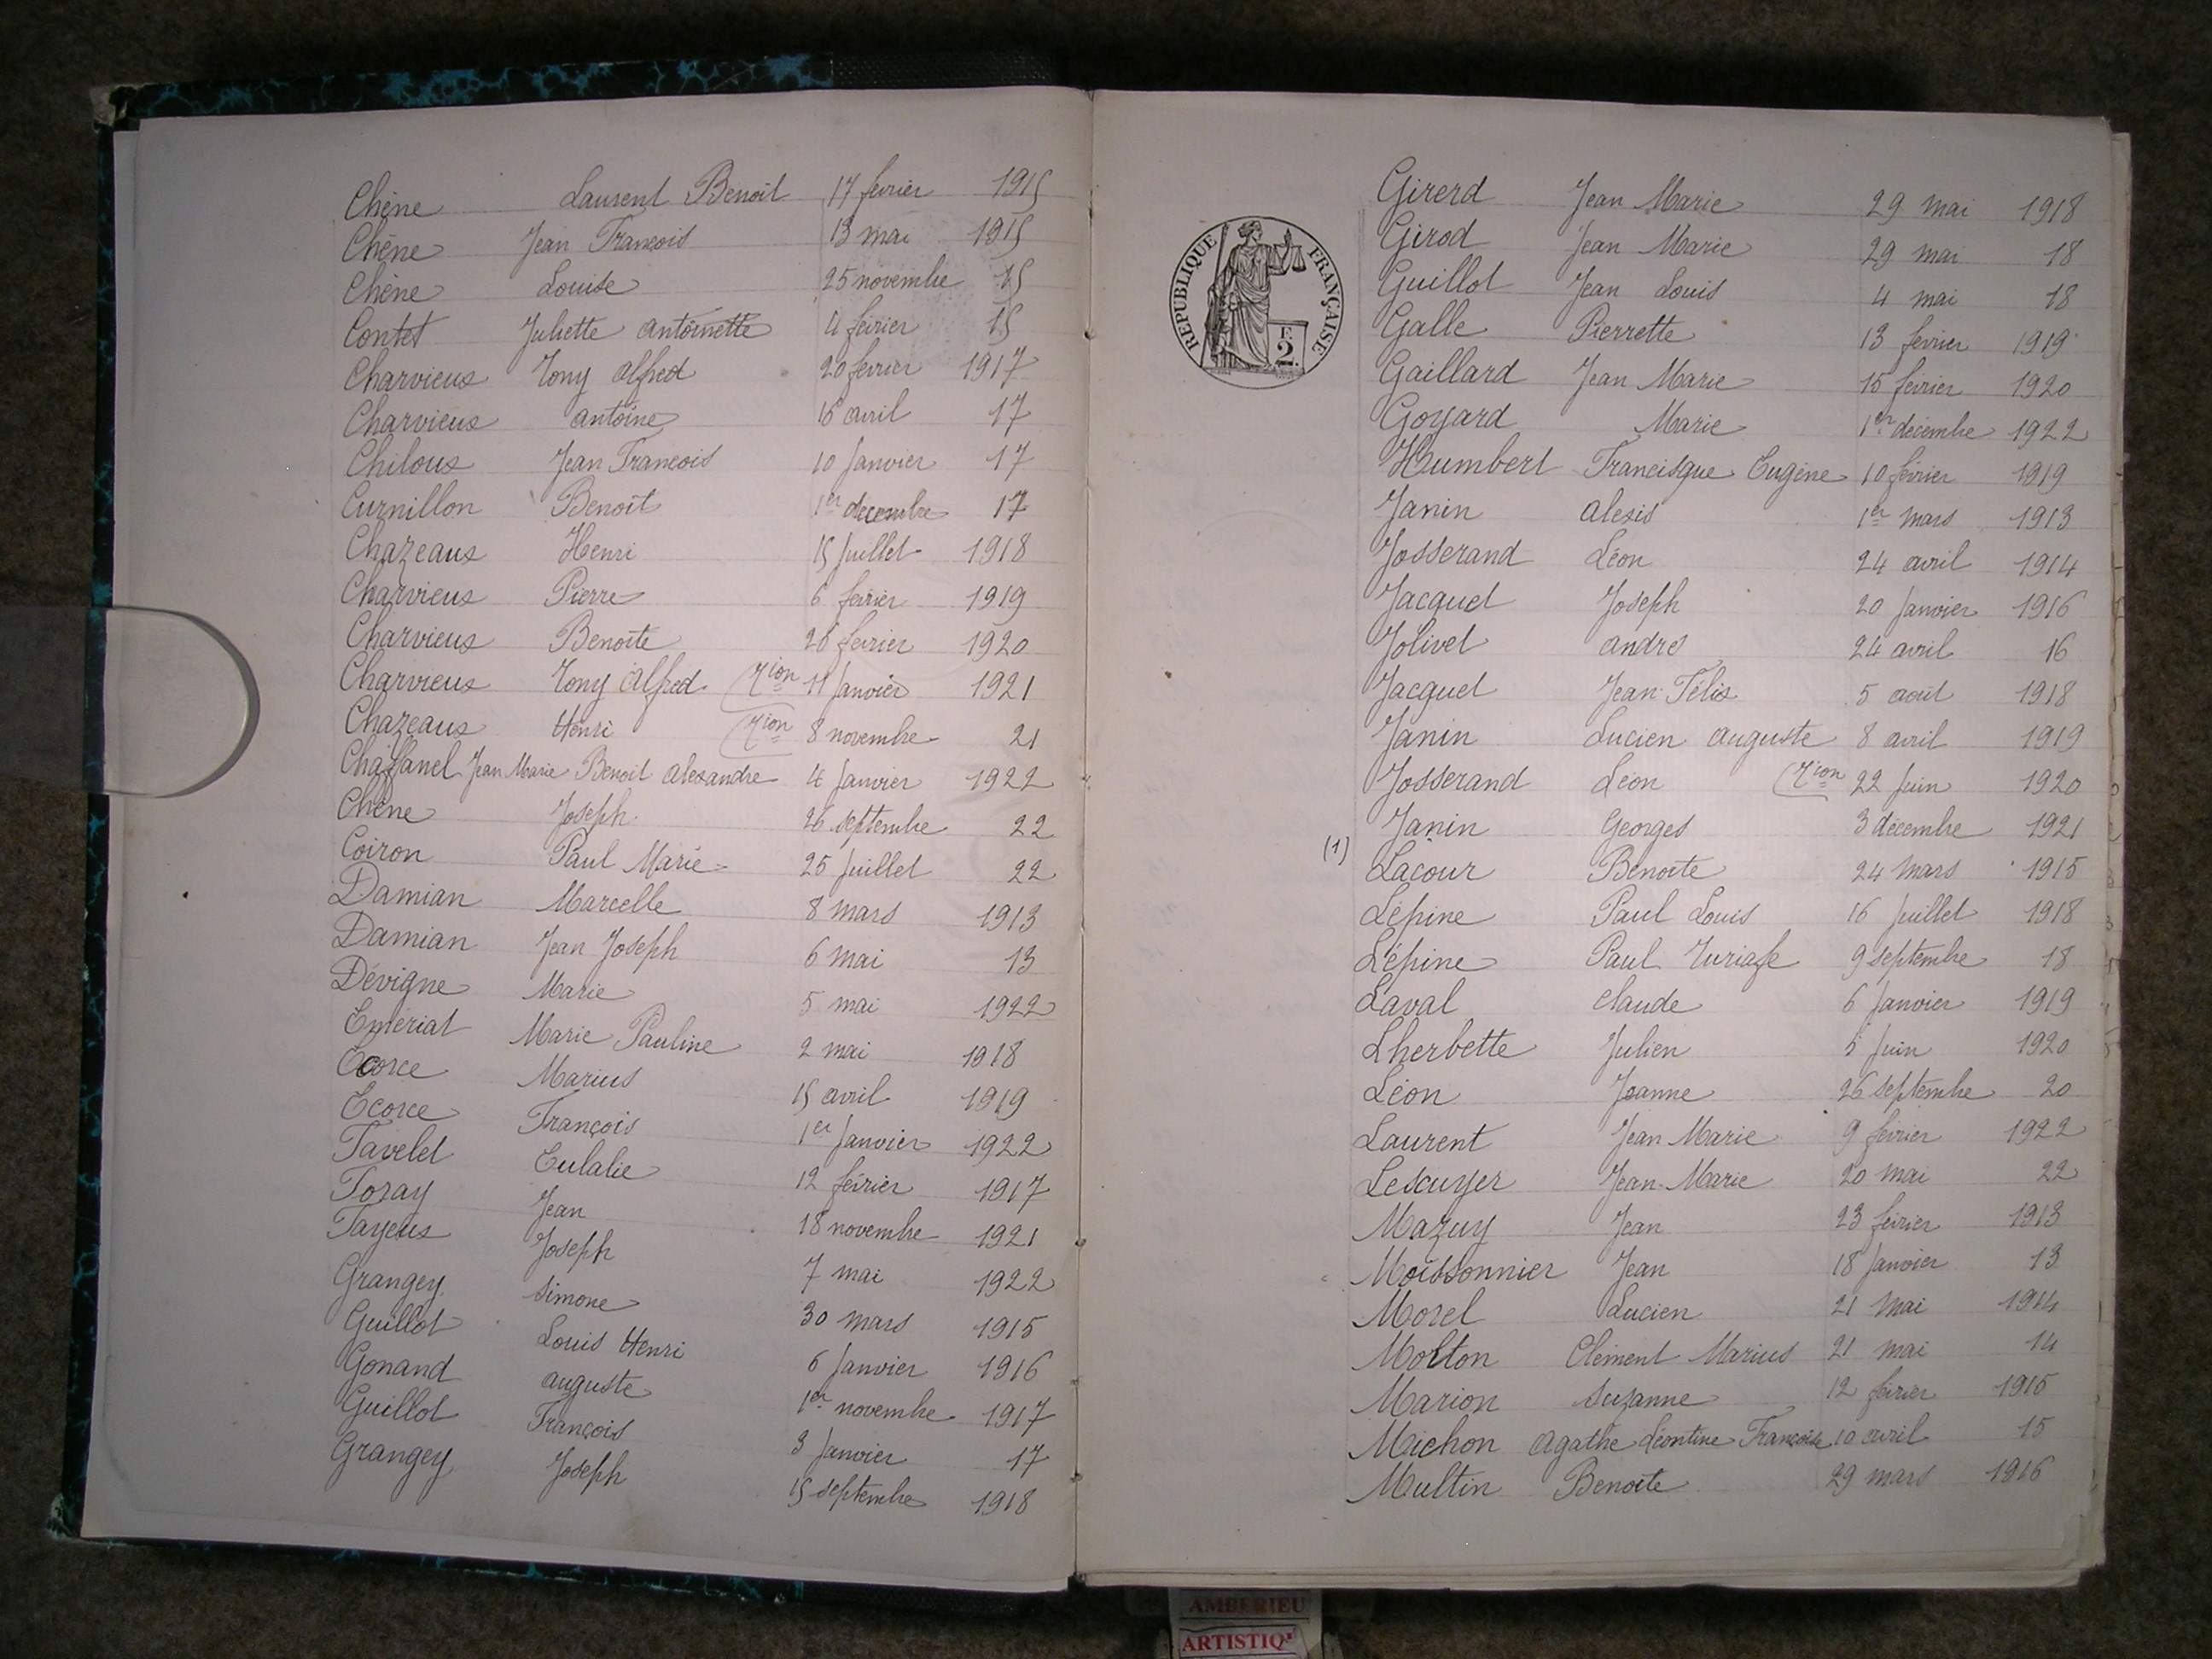 Chêne Laurent Benoît 17 février 1915
Chêne Jean François 13 mai 1915
Chêne Louise 25 novembre 15
Contet Juliette Antoinette 4 février 15
Charvieux Tony Alfred 20 février 1917
Charvieux Antoine 16 avril 17
Chiloux Jean François 10 Janvier 17
Curnillon Benoît 1er décembre 17
Chazeaux Henri 15 Juillet 1918
Charvieux Pierre 6 février 1919
Charvieux Benoîte 26 février 1920
Charvieux Tony Alfred (Xion 11 Janvier 1921
Chazeaux Henri (Xion 8 novembre 21
Chaffanel Jean Marie Benoit Alexandre 4 Janvier 1922
Chêne Joseph 26 septembre 22
Coiron Paul Marie 25 Juillet 22
Damian Marcelle 8 mars 1913
Damian Jean Joseph 6 mai 13
Dévigne Marie 5 mai 1922
Emériat Marie Pauline 2 mai 1918
Ecorce Marius 15 avril 1919
Ecorce François 1er Janvier 1922
Favelet Eulalie 12 février 1917
Foray Jean 18 novembre 1921
Fayeux Joseph 7 mai 1922
Grangey Simone 30 mars 1915
Guillot Louis Henri 6 Janvier 1916
Gonand Auguste 1er novembre 1917
Guillot François 3 Janvier 17
Grangey Joseph 15 septembre 1918
RÉPUBLIQUE FRANÇAISE
F. 2.
Girerd Jean Marie 29 mai 1918
Girod Jean Marie 29 mai 18
Guillot Jean Louis 4 mai 18
Galle Pierrette 13 février 1919
Gaillard Jean Marie 15 février 1920
Goyard Marie 1er décembre 1922
Humbert Francisque Eugène 10 février 1919
Janin Alexis 1er mars 1913
Josserand Léon 24 avril 1914
Jacquet Joseph 20 Janvier 1916
Jolivet André 24 avril 16
Jacquet Jean Félix 5 août 1918
Janin Lucien Auguste 8 avril 1919
Josserand Léon (Xion 22 Juin 1920
Janin Georges 3 décembre 1921
(1) Lacour Benoîte 24 mars 1915
Lépine Paul Louis 16 Juillet 1918
Lépine Paul Turiafe 9 septembre 18
Laval Claude 6 Janvier 1919
Lherbette Julien 5 Juin 1920
Léon Joanne 26 septembre 20
Laurent Jean Marie 9 février 1922
Lescuyer Jean-Marie 20 mai 22
Mazuy Jean 23 février 1913
Moissonnier Jean 18 Janvier 13
Morel Lucien 21 mai 1914
Molton Clément Marius 21 mai 14
Marion Suzanne 12 février 1915
Michon Agathe Léontine Françoise 10 avril 15
Multin Benoîte 29 mars 1916
AMBERIEU
ARTISTIQ